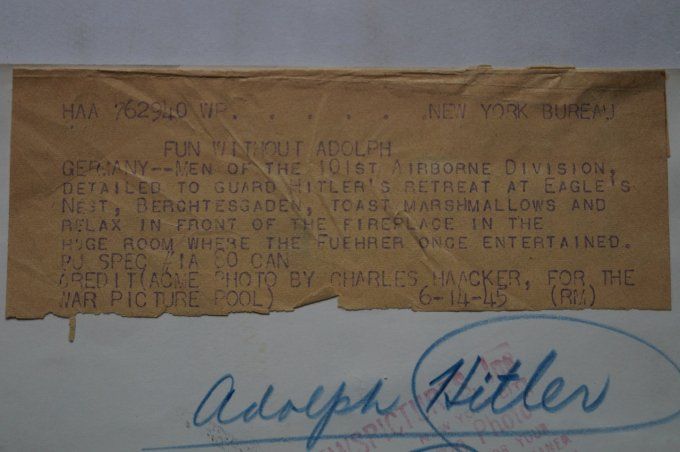 HAA 762940 WP. . . . . . .NEW YORK BUREAU
FUN WITHOUT ADOLPH
GERMANY--MEN OF THE 101ST AIRBORNE DIVISION,
DETAILED TO GUARD HITLER'S RETREAT AT EAGLE'S
NEST, BERCHTESGADEN, TOAST MARSHMALLOWS AND
RELAX IN FRONT OF THE FIREPLACE IN THE
HUGE ROOM WHERE THE FUEHRER ONCE ENTERTAINED.
BU SPEC CO CAN
CREDIT(ACME PHOTO BY CHARLES HAACKER, FOR THE
WAR PICTURE POOL) 6-14-45 (RM)
Adolph Hitler
Photo
YOUR